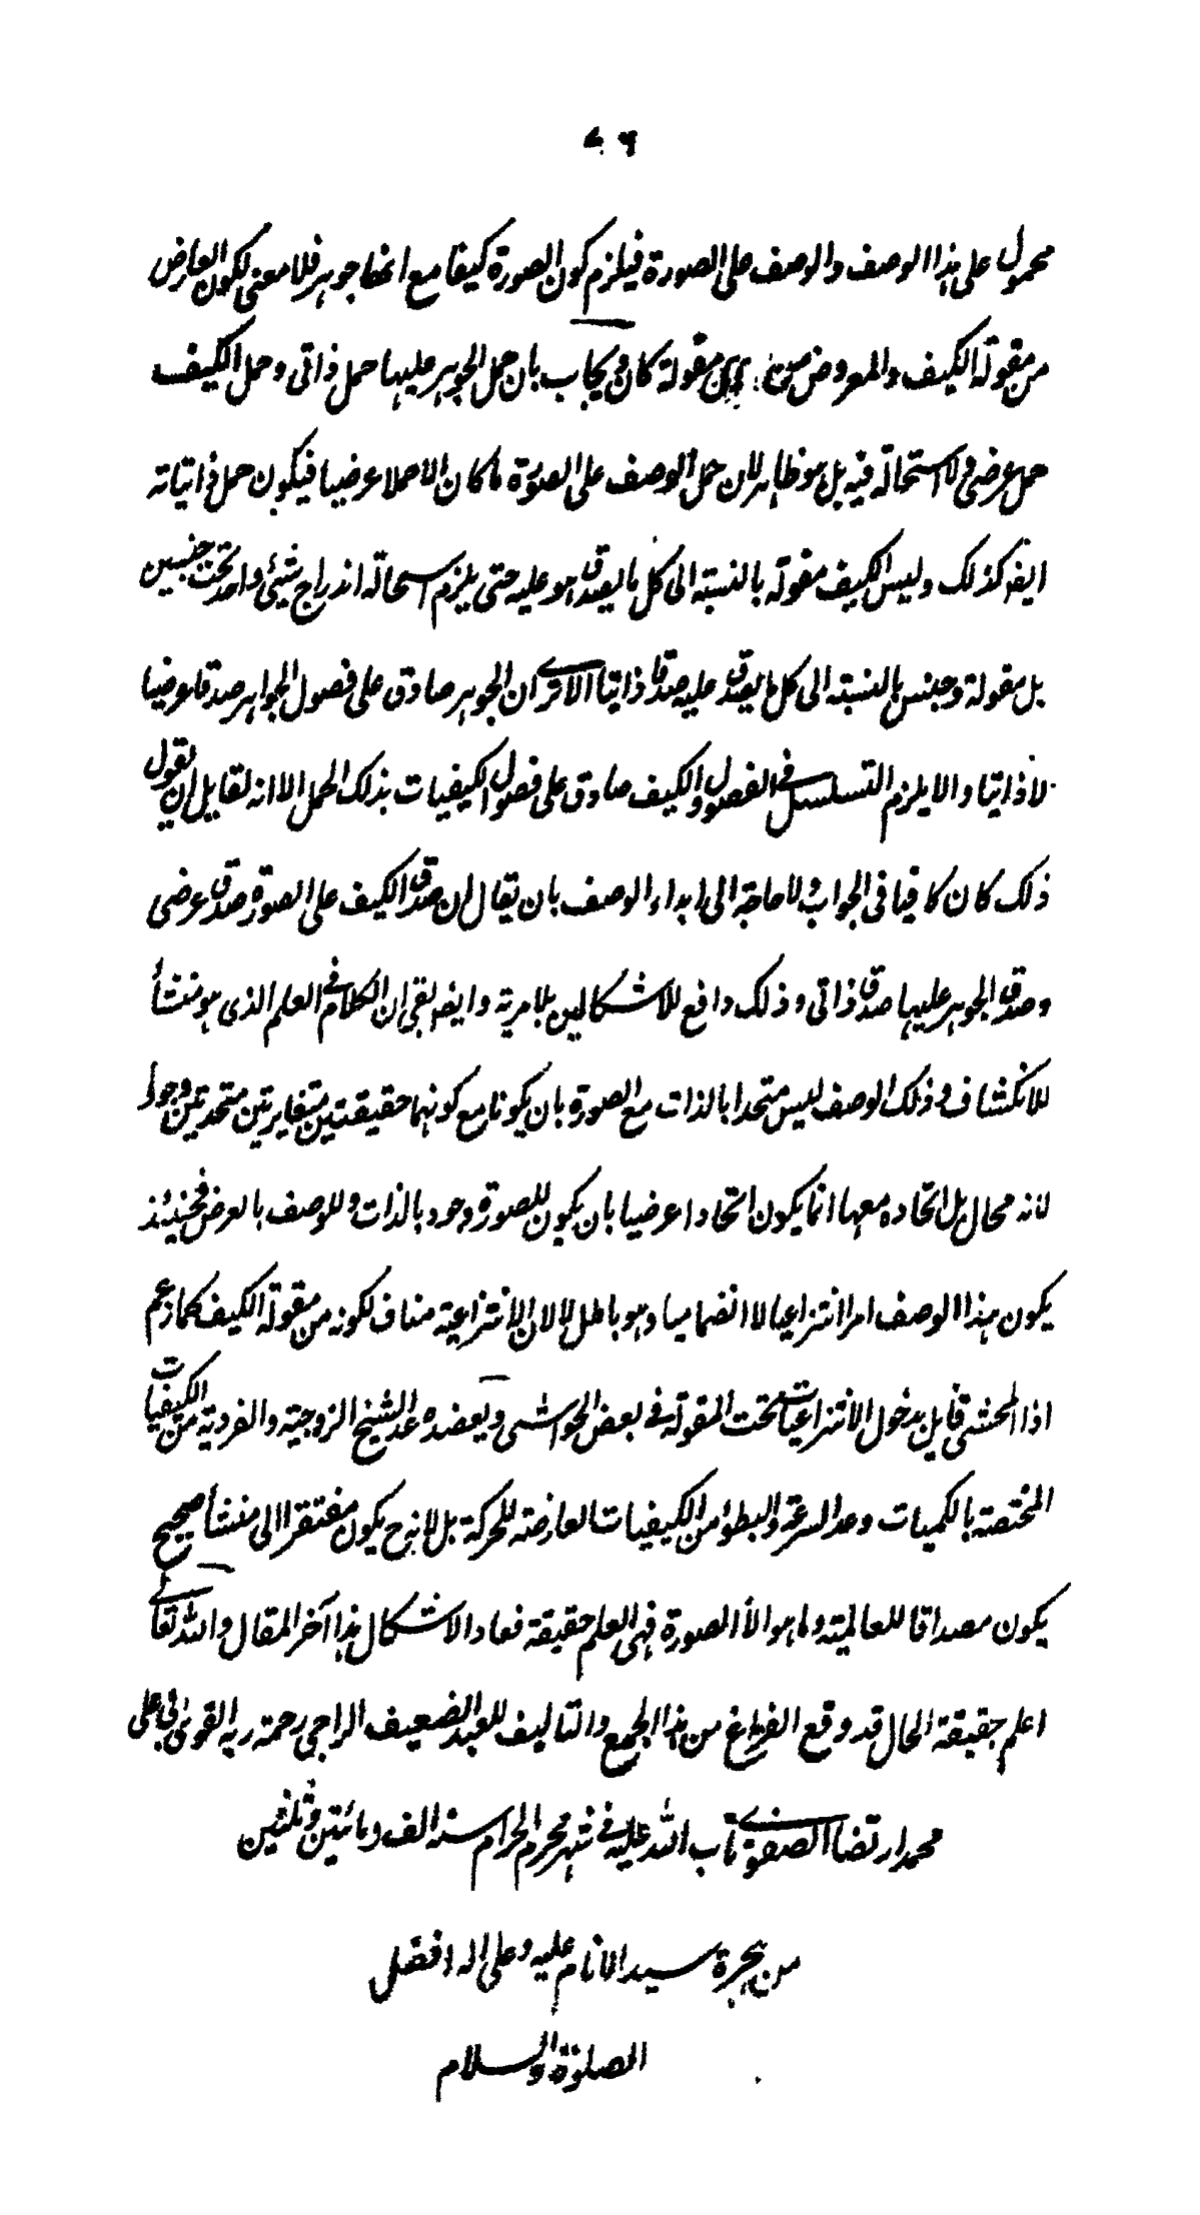 ٧٦
محمول على هذا الوصف والوصف على الصورة فيلزم كون الصورة كيفا مع انها جوهر فلا معنى لكون العارض
من مقولة الكيف والمعروض من اى مقولة كان ويجاب بان حمل الجوهر عليها حمل ذاتى وحمل الكيف
حمل عرضى ولا استحالة فيه بل هو ظاهر لان حمل الوصف على الصورة ما كان الا حملا عرضيا فيكون حمل ذاتياته
ايضا كذلك وليس الكيف مقولة بالنسبة الى كل ما يصدق هو عليه حتى يلزم استحالة اندراج شيئ واحد تحت جنسين
بل مقولة وجنس بالنسبة الى كل ما يصدق عليه صدقا ذاتيا الا ترى ان الجوهر صادق على فصول الجواهر صدقا عرضيا
لا ذاتيا والا يلزم التسلسل فى الفصول والكيف صادق على فصول الكيفيات بذلك الحمل الا انه لقايل ان يقول
ذلك كان كافيا فى الجواب ولا حاجة الى ابداء الوصف بان يقال ان صدق الكيف على الصورة صدق عرضى
وصدق الجوهر عليها صدق ذاتى وذلك دافع للاشكالين بلا مرية وايضا بقى ان الكلام فى العلم الذى هو منشأ
للانكشاف وذلك الوصف ليس متحدا بالذات مع الصورة بان يكونا مع كونهما حقيقتين متغايرتين متحدتين وجودا
لانه محال بل اتحاده معها انما يكون اتحادا عرضيا بان يكون للصورة وجود بالذات وللوصف بالعرض فحينئذ
يكون هذا الوصف امرا انتزاعيا لا انضماميا وهو باطل لا لان الانتزاعية مناف لكونه من مقولة الكيف كما زعم
اذا المحشى قايل بدخول الانتزاعيات تحت المقولة فى بعض الحواشى ويعضده عد الشيخ الزوجية والفردية من الكيفيات
المختصة بالكميات وعد السرعة والبطؤ من الكيفيات العارضة للحركة بل لانه ح يكون مفتقرا الى منشأ صحيح
يكون مصداقا للعالمية وما هو الا الصورة فهى العلم حقيقة فعاد الاشكال هذا آخر المقال والله تعالى
اعلم حقيقة الحال قد وقع الفراغ من هذا الجمع والتاليف للعبد الضعيف الراجى رحمة ربه القوى على
محمد ارتضا الصفوى تاب الله عليه فى شهر محرم الحرام سنه الف ومائتين وثلثين
من هجرة سيد الانام عليه وعلى اله افضل
الصلوة والسلام